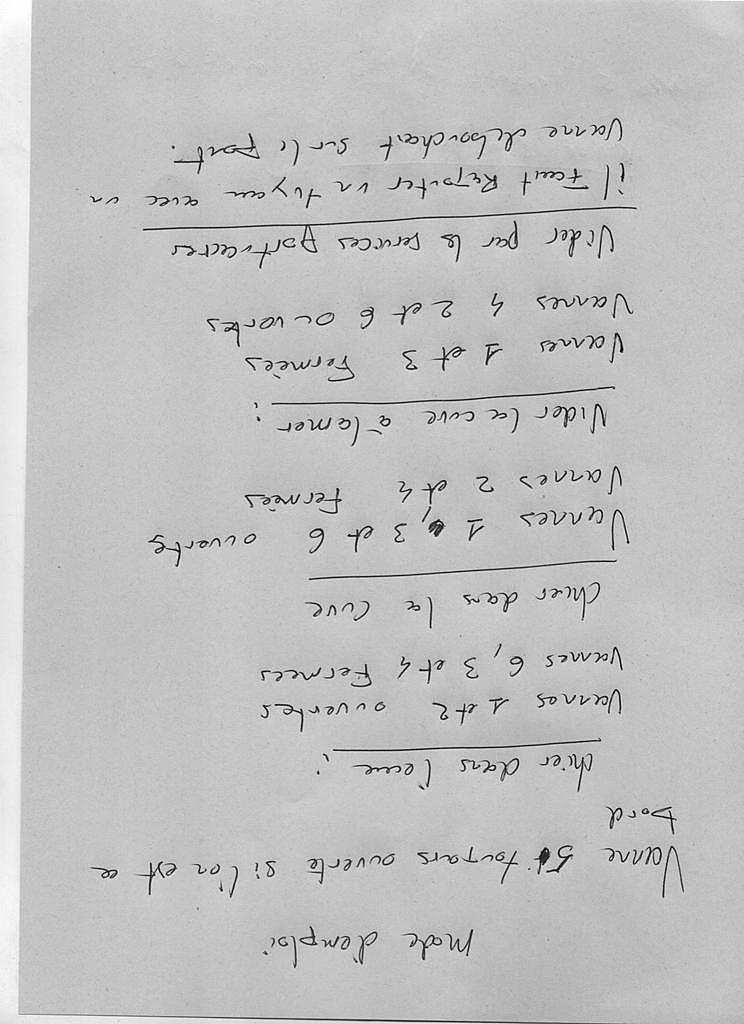 Mode d'emploi
Vanne 5 toujours ouverte si l'on est a
bord
chier dans l'eau :
Vannes 1 et 2 ouvertes
Vannes 6, 3 et 4 Fermées
Chier dans la cuve
Vannes 1, 3 et 6 ouverte
Vannes 2 et 4 Fermées
Vider la cuve à la mer :
Vannes 1 et 3 Fermées
Vannes 4 2 et 6 ouvertes
Vider par les services portuaires
il Faut Rajouter un tuyau avec un
Vanne debouchant sur le pont.